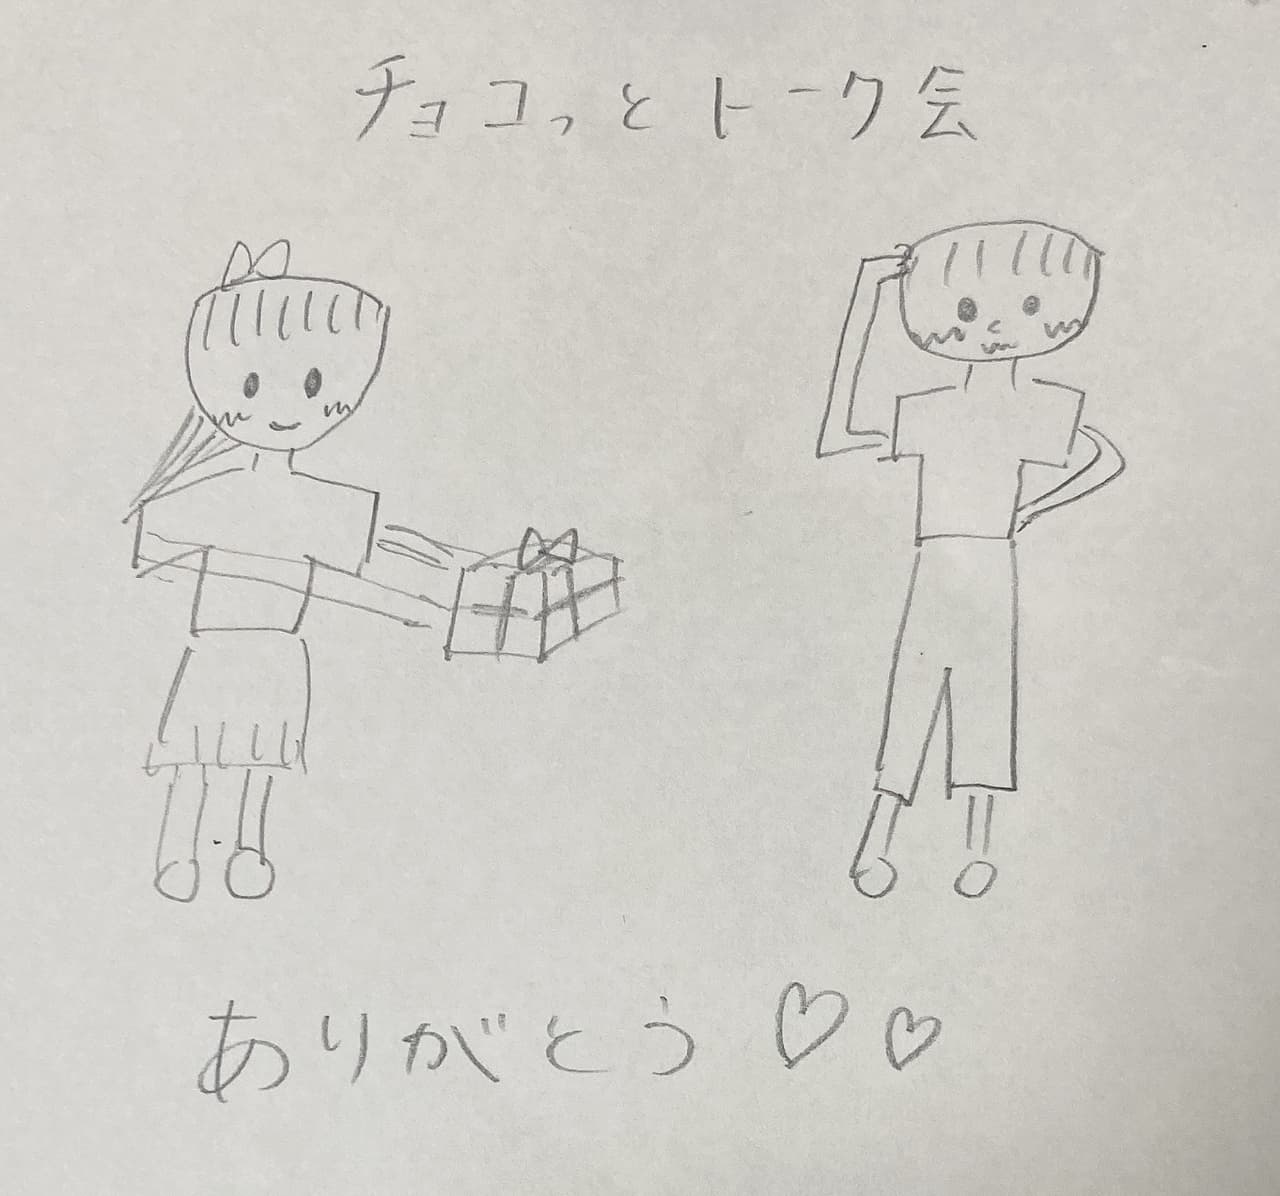 チョコっとトーク会
ありがとう♡♡